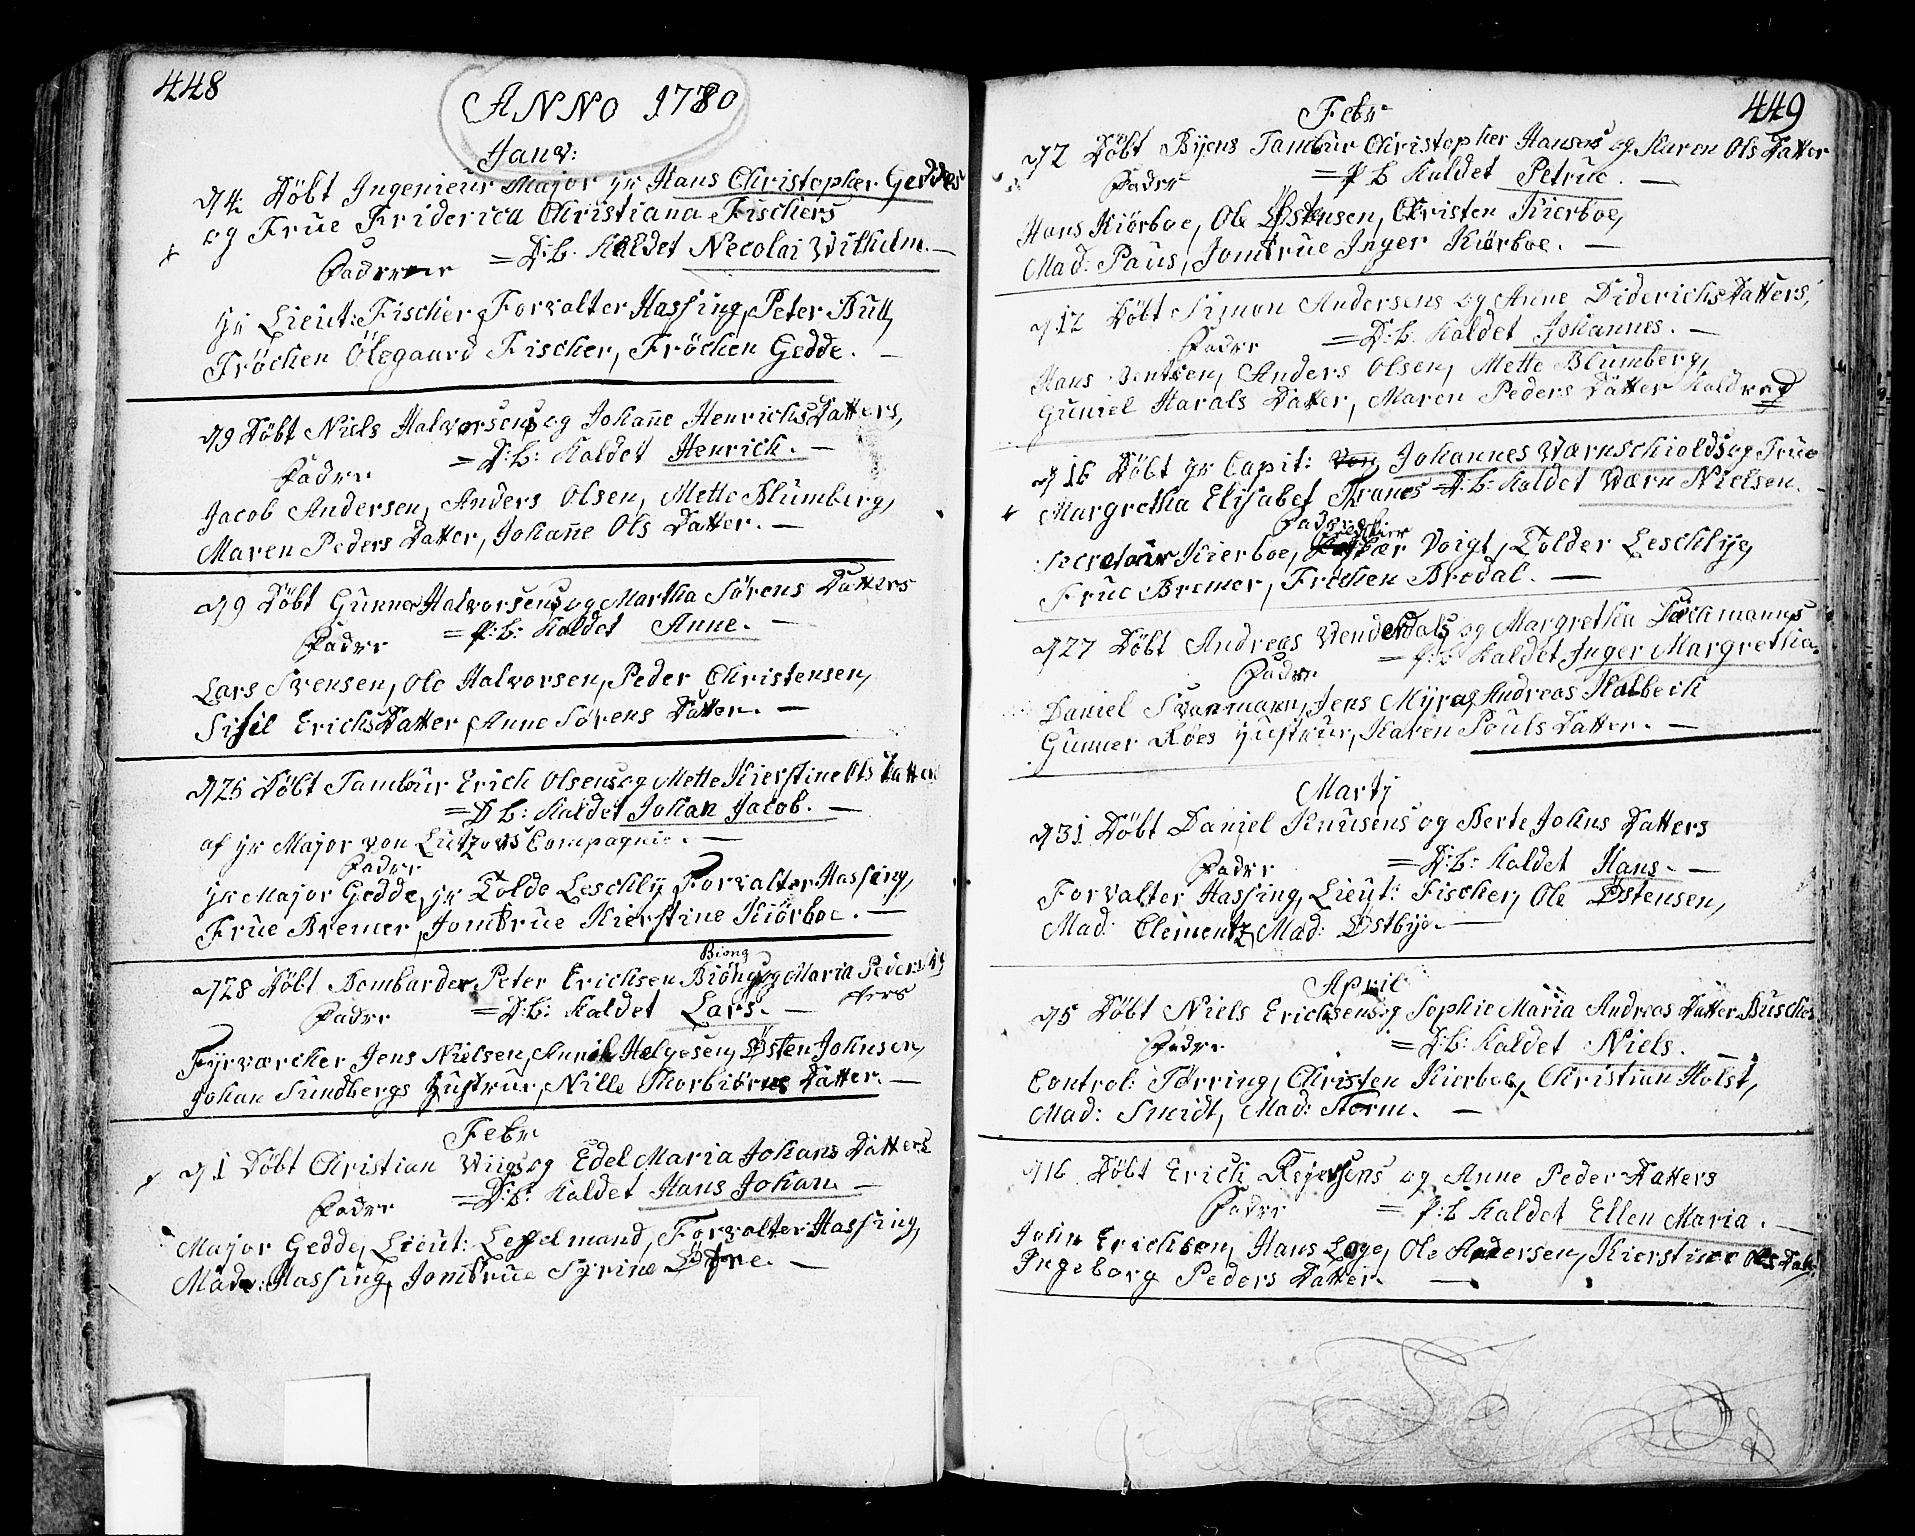 448
ANNO 1780
Janv:
d 4 Döbt Ingenieur Major Hr Hans Christopher Geddes
og Frue Friderica Christiana Fischers
Fadrene = D:b: Kaldet Necolai Wilhelm. —
Hr Lieut: Fischer, Forvalter Hassing, Peter Butt,
Fröchen Ölegaard Fischer, Fröchen Gedde. —
d 9 Döbt Niels Halvorsens og Johañe Henrichs Datters,
Fadre = D:b: Kaldet Henrich. —
Jacob Andersen, Anders Olsen, Mette Blumberg,
Maren Peders Datter, Johañe Ols Datter. —
d 9 Döbt Gunner Halvorsens og Martha Sørens Datters
Fadre = P:b: Kaldet Anne. —
Lars Svensen, Ole Halvorsen, Peder Christensen,
Sisil Erichs Datter, Anne Sørens Datter. —
d 25 Döbt Tambur Erich Olsens og Mette Kierstine Ols Datters
= D b: Kaldet Johan Jacob. —
af Hr Major von Lützovs Compagnie. —
Fadre
Hr Major Gedde, Hr Tolde Leschly, Forvalter Hassing,
Frue Bremer, Jomfrue Kierstine Kiörboe. —
Biong
d 28 Döbt Bombarder Peter Erichsen Biöngs og Maria Peders Dat
ters
Fadre = D:b: Kaldet Lars. —
Fyrværcker Jens Nielsen, Annik Helgesen, Østen Johnsen,
Johan Sundbergs Hustrue, Nille Thorbiörns Datter. —
Febr
d 1 Döbt Christian Wiigs og Edel Maria Johans Datters
Fadre = D:b: Kaldet Hans Johan —
Major Gedde, Lieut: Lesselmand, Forvalter Hassing,
Made: Hassing, Jomfrue Syrine —
449
Febr
d 2 Döbt Byens Tambur Christopher Hansens og Karen Ols Datter
Fadre = P b Kaldet Petrue. —
Hans Kiörboe, Ole Østensen, Christen Kierboe,
Mad: Paus, Jomfrue Inger Kiörboe. —
d 12 Döbt Simon Andersens og Anne Diderichs Datters,
Fadre = D:b. Kaldet Johannes. —
Hans Bentsen, Anders Olsen, Mette Blumberg,
Guniel Harals Datter, Maren Peders Datter Kaldrød
d 16 Döbt Hr Capit: von Johannes Wærnschiolds og Frue
Margretha Elisabet Thranes = D:b: Kaldet Wærn Nielsen.
Fadre
Secretair Kierboe, Voigt, Tolder Leschlye,
Frue Bremer, Frøchen Bredal. —
d 27 Döbt Andreas Vendetdals og Margretha Dachmanns
Fadre = P:b Kaldet Inger Margretha.
Daniel Svanmann, Jens Myra, Andreas Holbech
Gunner Röes Hustrue, Karen Pouls Datter. —
Martj
d 31 Döbt Daniel Knusens og Berte Johns Datters
Fadre = D:b: Kaldet Hans. —
Forvalter Hassing, Lieut: Fischer, Ole Østensen,
Mad: Clementz, Mad: Østbye. —
April
d 5 Döbt Niels Erichsens og Sophie Maria Andreas Datter Busches
Fadre = D:b: Kaldet Niels. —
Control: Tørring, Christen Kierboe, Christian Holst,
Mad: Smidt, Mad: Storm. —
d 16 Döbt Erich Rejersens og Anne Peder Datters
Fadre = P:b Kaldet Ellen Maria. —
John Erichsen, Hans Loge, Ole Andersen, Kierstine Ols Datt:
Ingeborg Peders Datter. —